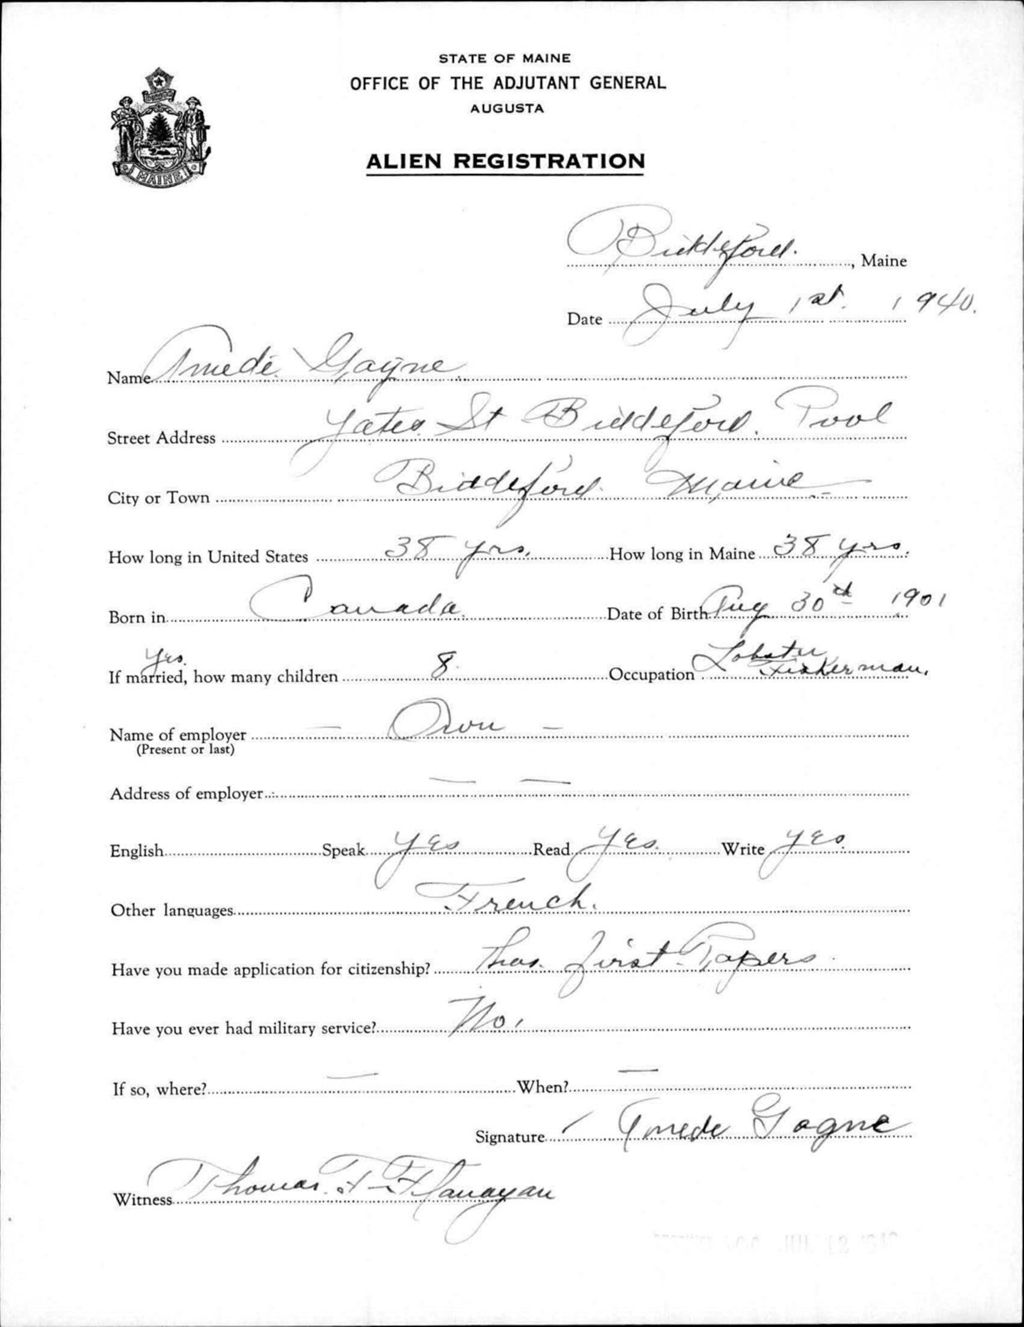 STATE OF MAINE
OFFICE OF THE ADJUTANT GENERAL
AUGUSTA
ALIEN REGISTRATION
MAINE
Biddeford., Maine
Date July 1st. 1940.
Name Amede Gagne
Street Address Yates St Biddeford. Pool
City or Town Biddeford Maine
How long in United States 38 yrs. How long in Maine 38 yrs.
Born in Canada. Date of Birth Aug 30th 1901
Yes.
If married, how many children 8. Occupation Lobster Fisherman.
Name of employer — Own —
(Present or last)
Address of employer — —
English Speak Yes Read Yes. Write Yes.
Other languages French.
Have you made application for citizenship? Has. first Papers.
Have you ever had military service? No.
If so, where? — When? —
Signature Amede Gagne
Witness Thomas F Flanagan
JUL 12 1940